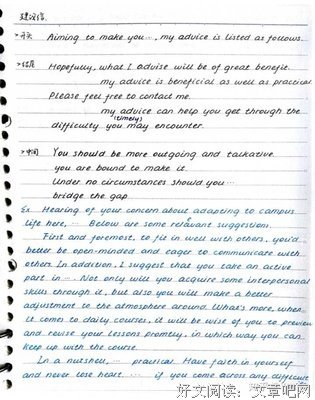 建议信
>开头 Aiming to make you..., my advice is listed as follows.
>结尾 Hopefully, what I advise will be of great benefit.
my advice is beneficial as well as practical
Please feel free to contact me.
my advice can help you get through the
(timely)
difficulty you may encounter.
>中间 You should be more outgoing and talkative.
you are bound to make it.
Under no circumstances should you...
bridge the gap
Ex. Hearing of your concern about adapting to campus
life here, ... Below are some relevant suggestion.
First and foremost, to fit in well with others, you'd
better be open-minded and eager to communicate with
others. In addition, I suggest that you take an active
part in... Not only will you acquire some interpersonal
skills through it, but also you will make a better
adjustment to the atmosphere around. What's more, when
it comes to daily courses, it will be wise of you to preview
and revise your lessons promtly, in which way you can
keep up with the course.
In a nutshell, ... practical. Have faith in yourself
and never lose heart. ... if you come across any difficulty
好文阅读：文章吧网